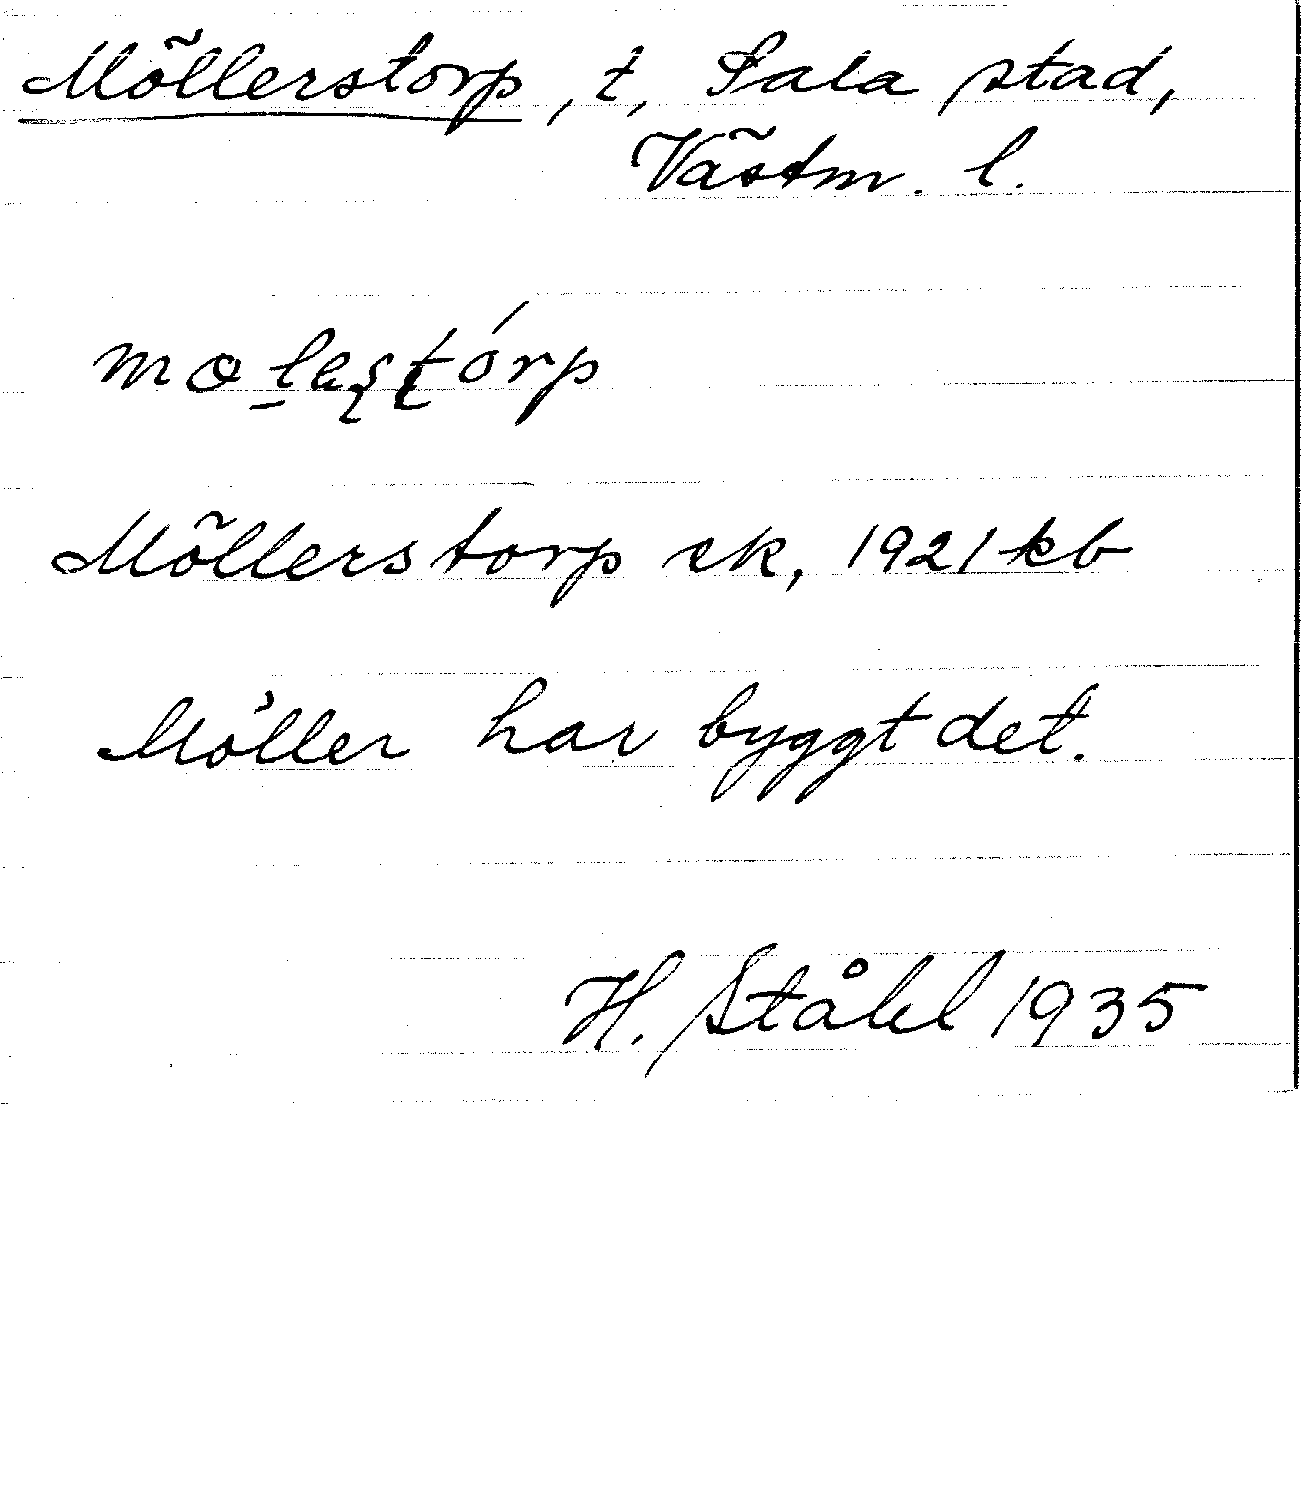 Möllerstorp, t, Sala stad,
Västm. l.
Möllerstorp ek, 1921 kb
Möller har byggt det.
H. Ståhl 1935